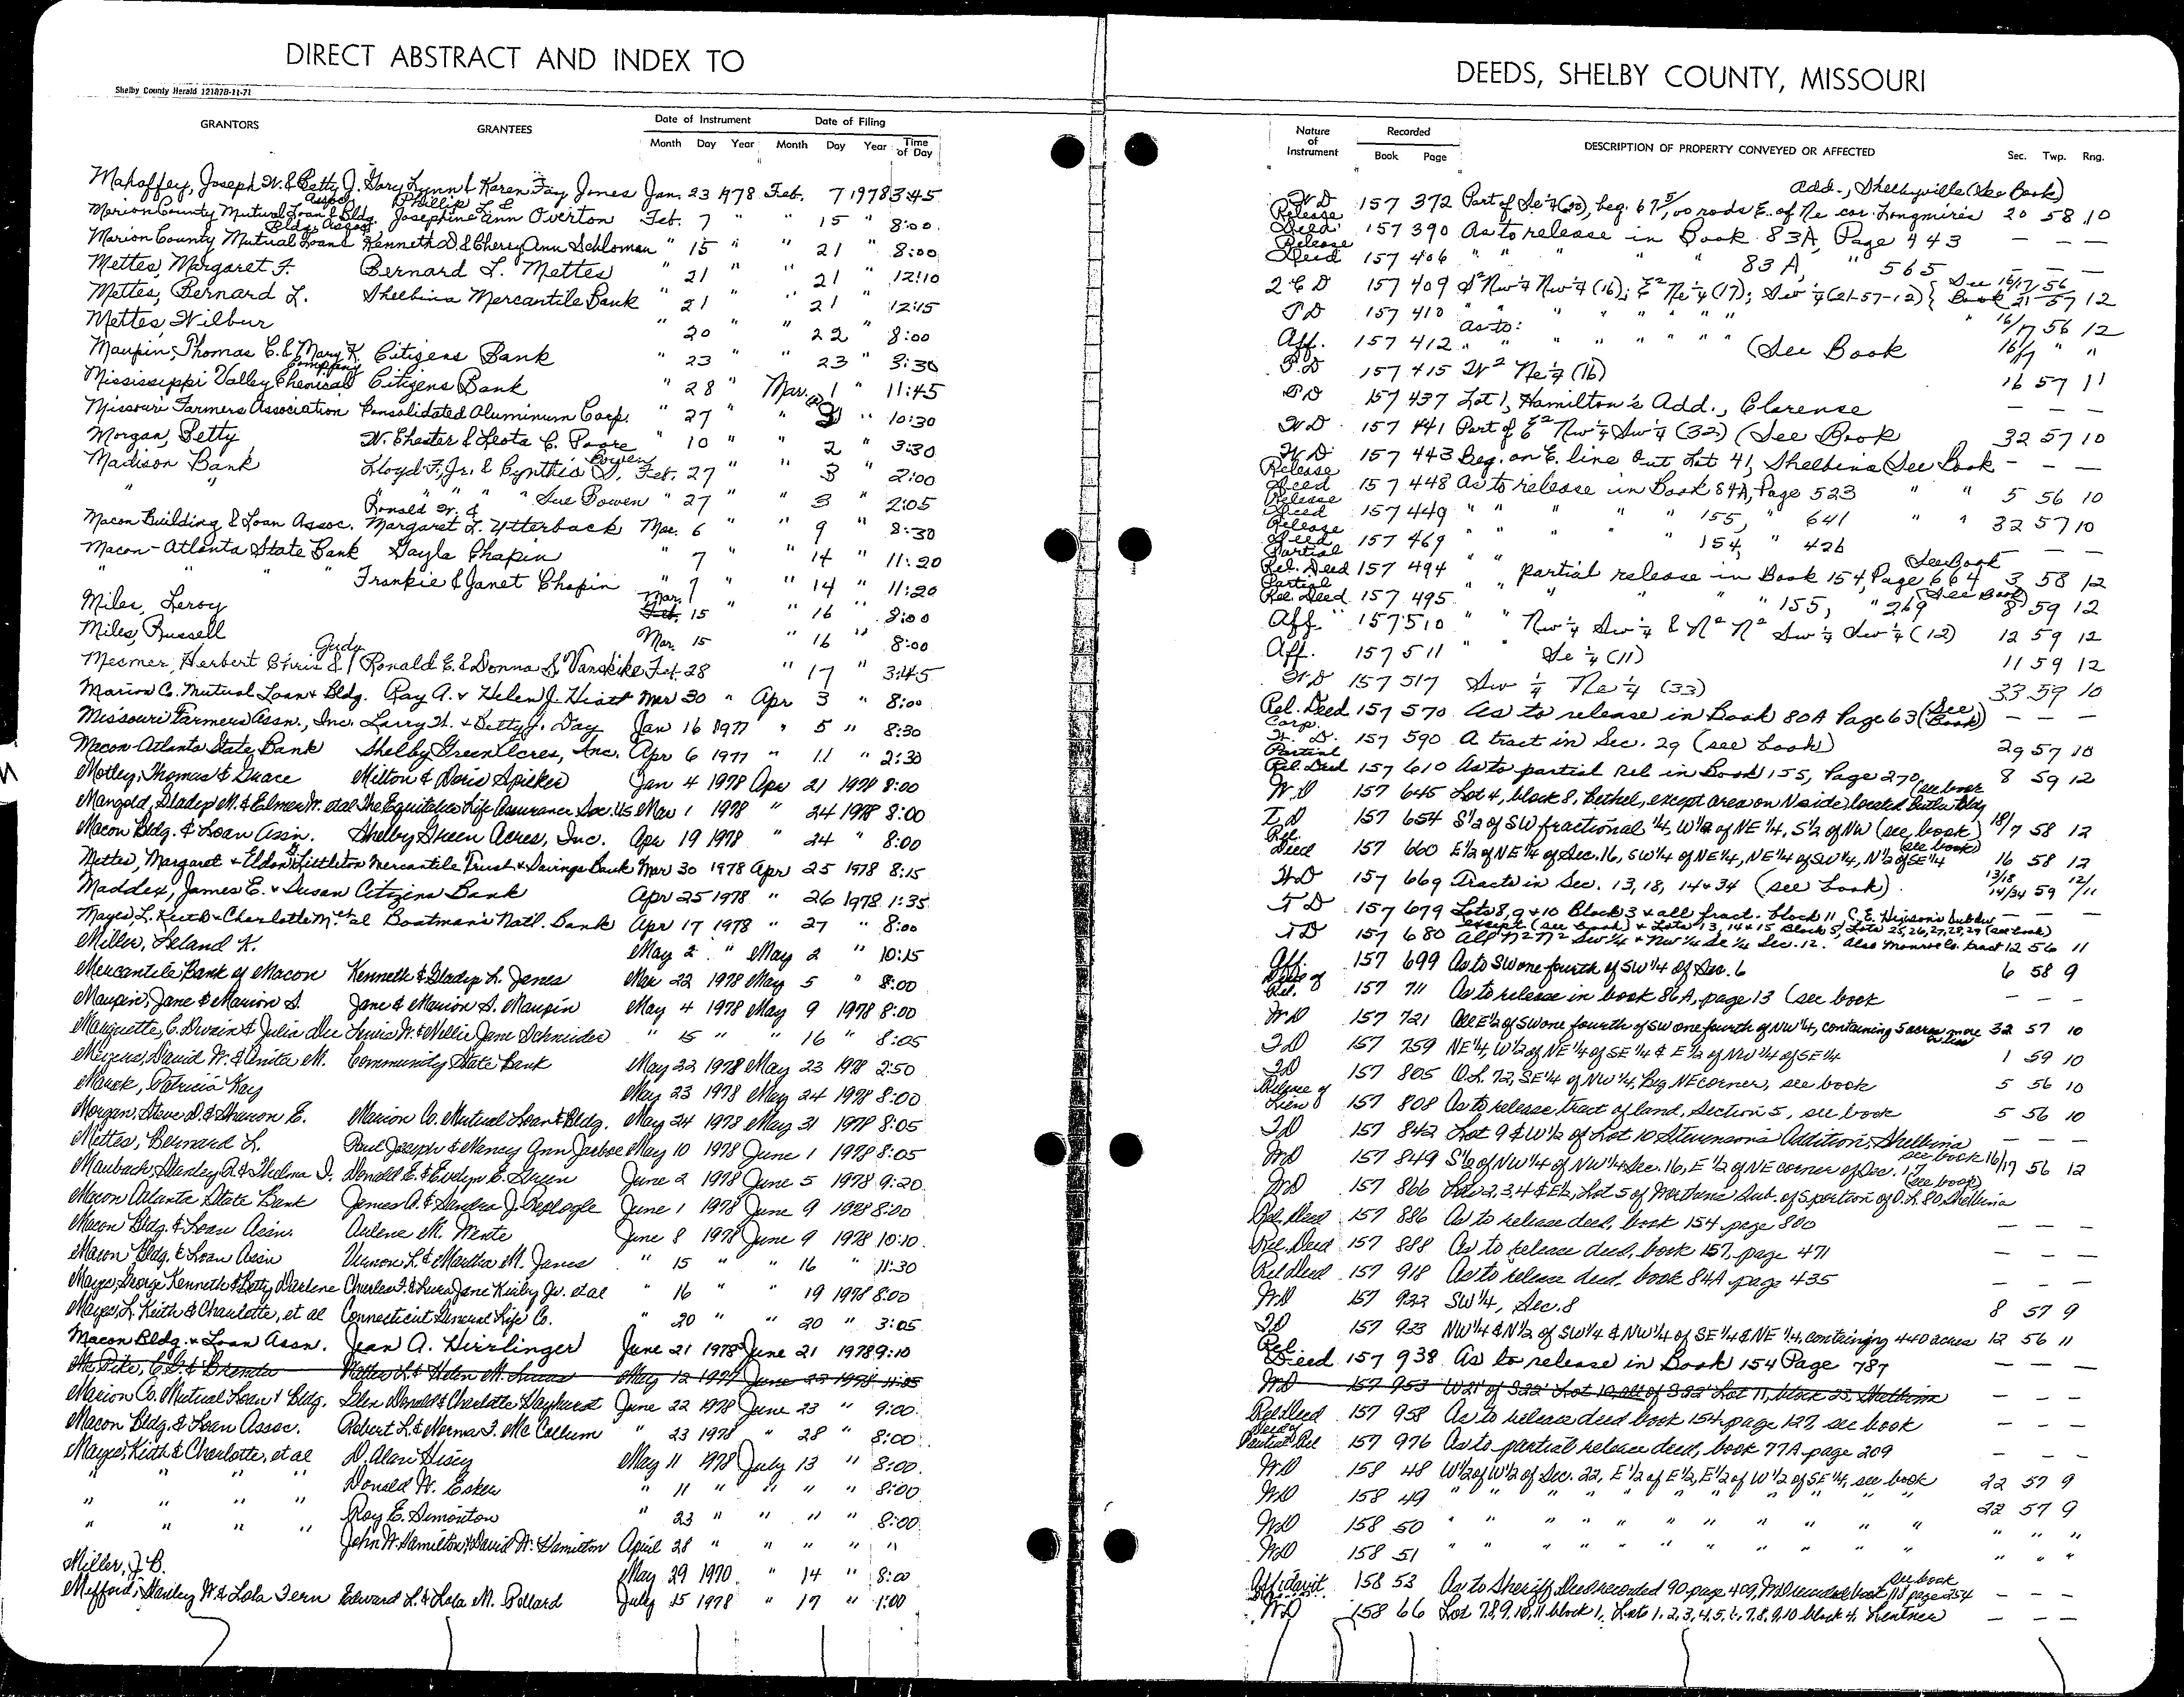 DIRECT ABSTRACT AND INDEX TO
Shelby County Herald 12187B-11-71
GRANTORS GRANTEES Date of Instrument Date of Filing
Month Day Year Month Day Year Time of Day
Mahaffey, Joseph W. & Betty J. Gary Lynn & Karen Fay Jones Jan. 23 1978 Feb. 7 1978 3:45
Marion County Mutual Loan & Bldg. Assoc. Phillip L & Josephine Ann Overton Feb. 7 " " 15 " 8:00
Marion County Mutual Loan & Bldg. Assoc. Kenneth D. & Cherry Ann Schloman " 15 " " 21 " 8:00
Mettes, Margaret F. Bernard L. Mettes " 21 " " 21 " 12:10
Mettes, Bernard L. Shelbina Mercantile Bank " 21 " " 21 " 12:15
Mettes, Wilbur " 20 " " 22 " 8:00
Maupin, Thomas C. & Mary K. Citizens Bank " 23 " 23 " 3:30
Mississippi Valley Chemical Company Citizens Bank " 28 " Mar. 1 " 11:45
Missouri Farmers Association Consolidated Aluminum Corp. " 27 " " 2 " 10:30
Morgan, Betty W. Chester & Leota C. Poore " 10 " " 2 " 3:30
Madison Bank Lloyd F. Jr. & Cynthia S. Bowen Feb. 27 " " 3 " 2:00
" " " " " " Sue Bowen " 27 " " 3 " 2:05
Macon Building & Loan Assoc. Ronald W. & Margaret L. Utterback Mar. 6 " " 9 " 8:30
Macon-Atlanta State Bank Gayla Chapin " 7 " 14 " 11:20
" " " Frankie & Janet Chapin " 7 " " 14 " 11:20
Miles, Leroy Mar. 15 " " 16 " 8:00
Miles, Russell Mar. 15 " 16 " 8:00
Mesmer, Herbert Chris & Judy Ronald E. & Donna S. Vanskike Feb. 28 " 17 " 3:45
Marion Co. Mutual Loan & Bldg. Ray A. & Helen J. Hiatt Mar 30 " Apr 3 " 8:00
Missouri Farmers Assn., Inc. Larry H. & Betty J. Day Jan 16 1977 " 5 " 8:30
Macon-Atlanta State Bank Shelby Green Acres, Inc. Apr 6 1977 " 11 " 2:30
Motley, Thomas & Grace Milton & Doris Spieker Jan 4 1978 Apr 21 1978 8:00
Mangold, Gladys M. & Elmer W. etal The Equitable Life Assurance Soc. US Mar 1 1978 " 24 1978 8:00
Macon Bldg. & Loan Assn. Shelby Green Acres, Inc. Apr 19 1978 " 24 " 8:00
Mettes, Margaret & Eldon G. Littleton Mercantile Trust & Savings Bank Mar 30 1978 Apr 25 1978 8:15
Maddex, James E. & Susan Citizens Bank Apr 25 1978 " 26 1978 1:35
Mayes, L. Keith & Charlotte M. et al Boatman's Natl. Bank Apr 17 1978 " 27 " 8:00
Miller, Leland K. May 2 " May 2 " 10:15
Mercantile Bank of Macon Kenneth & Gladys L. Jones Mar 22 1978 May 5 " 8:00
Maupin, Jane & Marion S. Jane & Marion S. Maupin May 4 1978 May 9 1978 8:00
Marquette, C. Dwain & Julia Dee Lewis W. & Nellie Jane Schneider " 15 " " 16 " 8:05
Meyers, David W. & Anita M. Community State Bank May 22 1978 May 23 1978 2:50
Mauck, Patricia Kay May 23 1978 May 24 1978 8:00
Morgan, Steve D. & Sharon E. Marion Co. Mutual Loan & Bldg. May 24 1978 May 31 1978 8:05
Mettes, Bernard L. Paul Joseph & Nancy Ann Jarboe May 10 1978 June 1 1978 8:05
Maubach, Stanley R. & Thelma I. Donald E. & Evelyn E. Green June 2 1978 June 5 1978 9:20
Macon Atlanta State Bank James A. & Sandra J. Replogle June 1 1978 June 9 1978 8:00
Macon Bldg. & Loan Assn. Arlene M. Mente June 8 1978 June 9 1978 10:10
Macon Bldg. & Loan Assn Vernon L. & Martha M. Janes " 15 " " 16 " 11:30
Mayes, George Kenneth & Betty Darlene Charles F. & Lura Jane Kirby Jr. et al " 16 " 19 1978 8:00
Mayes, L. Keith & Charlotte, et al Connecticut General Life Co. " 20 " " 20 " 3:05
Macon Bldg. & Loan Assn. Jean A. Hirrlinger June 21 1978 June 21 1978 9:10
Mc Pike, C.D. & Brenda Helen M. May 12 1977 June 23 1978 11:05
Marion Co. Mutual Loan & Bldg. Glen Donald & Charlotte Hayhurst June 22 1978 June 23 " 9:00
Macon Bldg. & Loan Assoc. Robert L. & Norma J. Mc Collum " 23 1978 " 28 " 8:00
Mayes, Keith & Charlotte, et al D. Alan Hisey May 11 1978 July 13 " 8:00
" " " " Donald W. Esker " 11 " " " " 8:00
" " " " Roy E. Simonton " 23 " " " " 8:00
" " " " John W. Hamilton & David W. Hamilton April 28 " " " "
Miller, J.B. May 29 1970 " 14 " 8:00
Mefford, Stanley W. & Lola Fern Edward L. & Lola M. Pollard July 15 1978 " 17 " 1:00
DEEDS, SHELBY COUNTY, MISSOURI
Nature of Instrument Recorded Book Page DESCRIPTION OF PROPERTY CONVEYED OR AFFECTED Sec. Twp. Rng.
Add., Shelbyville (See Book)
WD 157 372 Part of Se¼(20), beg. 67 5/100 rods E. of Ne cor. Longmire's 20 58 10
Release Deed 157 390 As to release in Book 83A, Page 443 — — —
Release Deed 157 406 " " " " 83A, " 565 — — —
2CD 157 409 S² Nw¼ Nw¼ (16); E² Ne¼ (17); Sw¼ (21-57-12) { See Book 16/17 56 21 57 12
TD 157 410 " " " " " " " 16/17 56 12
Aff. 157 412 " as to: " " " " " (See Book 16/17 " "
TD 157 415 W² Ne¼ (16) 16 57 11
TD 157 437 Lot 1, Hamilton's Add., Clarence — — —
WD 157 441 Part of E² Nw¼ Sw¼ (32) (See Book 32 57 10
WD 157 443 Beg. on E. line Out Lot 41, Shelbina (See Book — — —
Release Deed 157 448 As to release in Book 84A, Page 523 " " 5 56 10
Release Deed 157 449 " " " " 155, " 641 " " 32 57 10
Release Deed 157 469 " " " 154, " 426 — — —
Partial Rel. Deed 157 494 " " partial release in Book 154, Page 664 See Book 3 58 12
Partial Rel. Deed 157 495 " " " " " 155, " 269 (See Book) 8 59 12
Aff. 157 510 " " Nw¼ Sw¼ & N² N² Sw¼ Sw¼ (12) 12 59 12
Aff. 157 511 " " Se¼ (11) 11 59 12
WD 157 517 Sw¼ Ne¼ (33) 33 59 10
Rel. Deed 157 570 As to release in Book 80A Page 63 (See Book) — — —
Corp. W. D. 157 590 A tract in Sec. 29 (see book) 29 57 10
Partial Rel. Deed 157 610 As to partial Rel in Book 155, Page 270 (see book 8 59 12
W.D 157 645 Lot 4, block 8, Bethel, except area on N side, located Butler Bldg
TD 157 654 S½ of SW fractional ¼, W½ of NE¼, S½ of NW (see book) 18/7 58 12
Rel. Deed 157 660 E½ of NE¼ of Sec. 16, SW¼ of NE¼, NE¼ of SW¼, N½ of SE¼ (see book) 16 58 12
WD 157 669 Tracts in Sec. 13, 18, 14 & 34 (see book) 13/18 14/34 59 12/11
TD 157 679 Lots 8, 9 & 10 Block 3 & all fract. block 11, C.E. Higison's Subdiv — — —
except (see book) & Lots 13, 14 & 15 Block 5, Lots 25, 26, 27, 28, 29 (see book)
TD 157 680 All N² N² Sw¼ & Nw¼ Se¼ Sec. 12. Also Monroe Co. tract 12 56 11
Aff. 157 699 As to SW one fourth of SW¼ of Sec. 6 6 58 9
Deed of Rel. 157 711 As to release in book 86A, page 13 (see book — — —
WD 157 721 All E½ of SW one fourth of SW one fourth of NW¼, containing 5 acres more or less 32 57 10
TD 157 759 NE¼, W½ of NE¼ of SE¼ & E½ of NW¼ of SE¼ 1 59 10
TD 157 805 O.L. 72, SE¼ of NW¼, Beg NE corner, see book 5 56 10
Release of Lien 157 808 As to release tract of land, Section 5, see book 5 56 10
TD 157 842 Lot 9 & W½ of Lot 10 Stevenson's Addition, Shelbina — — —
WD 157 849 S½ of NW¼ of NW¼ Sec. 16, E½ of NE corner of Sec. 17 see book 16/17 56 12
WD 157 866 Lots 2, 3, 4 & E½, Lot 5 of Northana Sub. of S portion of O.L. 80, Shelbina (see book)
Rel. Deed 157 886 As to release deed, book 154 page 880 — — —
Rel. Deed 157 888 As to release deed, book 157, page 471 — — —
Rel Deed 157 918 As to release deed, book 84A page 435 — — —
WD 157 922 SW¼, Sec. 8 8 57 9
TD 157 933 NW¼ & N½ of SW¼ & NW¼ of SE¼ & NE¼, containing 440 acres 12 56 11
Rel. Deed 157 938 As to release in Book 154 Page 787 — — —
WD 157 953 W21' of S22' Lot 10, all of S22' Lot 11, block 23, Shelbina — — —
Rel Deed 157 958 As to release deed book 154, page 127, see book — — —
Deed of Partial Rel 157 976 As to partial release deed, book 77A page 209 — — —
WD 158 48 W½ of W½ of Sec. 22, E½ of E½, E½ of W½ of SE¼, see book 22 57 9
WD 158 49 " " " " " " " " " " 22 57 9
WD 158 50 " " " " " " " " " " " " "
WD 158 51 " " " " " " " " " " " " "
Affidavit 158 53 As to Sheriff Deed recorded 90 page 409, book 118 page 254 see book
WD 158 66 Lot 7,8,9,10,11 block 1, Lots 1,2,3,4,5,6,7,8,9,10 block 4, Lentner — — —